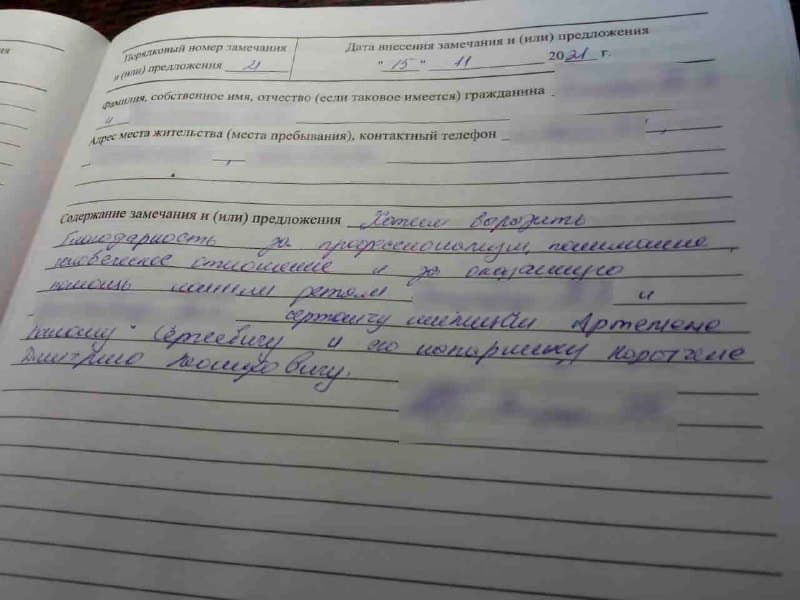 ия
Порядковый номер замечания
и (или) предложения 21
Дата внесения замечания и (или) предложения
" 15 " 11 2021 г.
фамилия, собственное имя, отчество (если таковое имеется) гражданина
и
Адрес места жительства (места пребывания), контактный телефон
Содержание замечания и (или) предложения Хотим выразить
благодарность за профессионализм, понимание,
человеческое отношение и за оказанную
помощь нашим детям и
сержанту милиции Артеменко
Сергеевичу и его напарнику Коротчене
Дмитрию